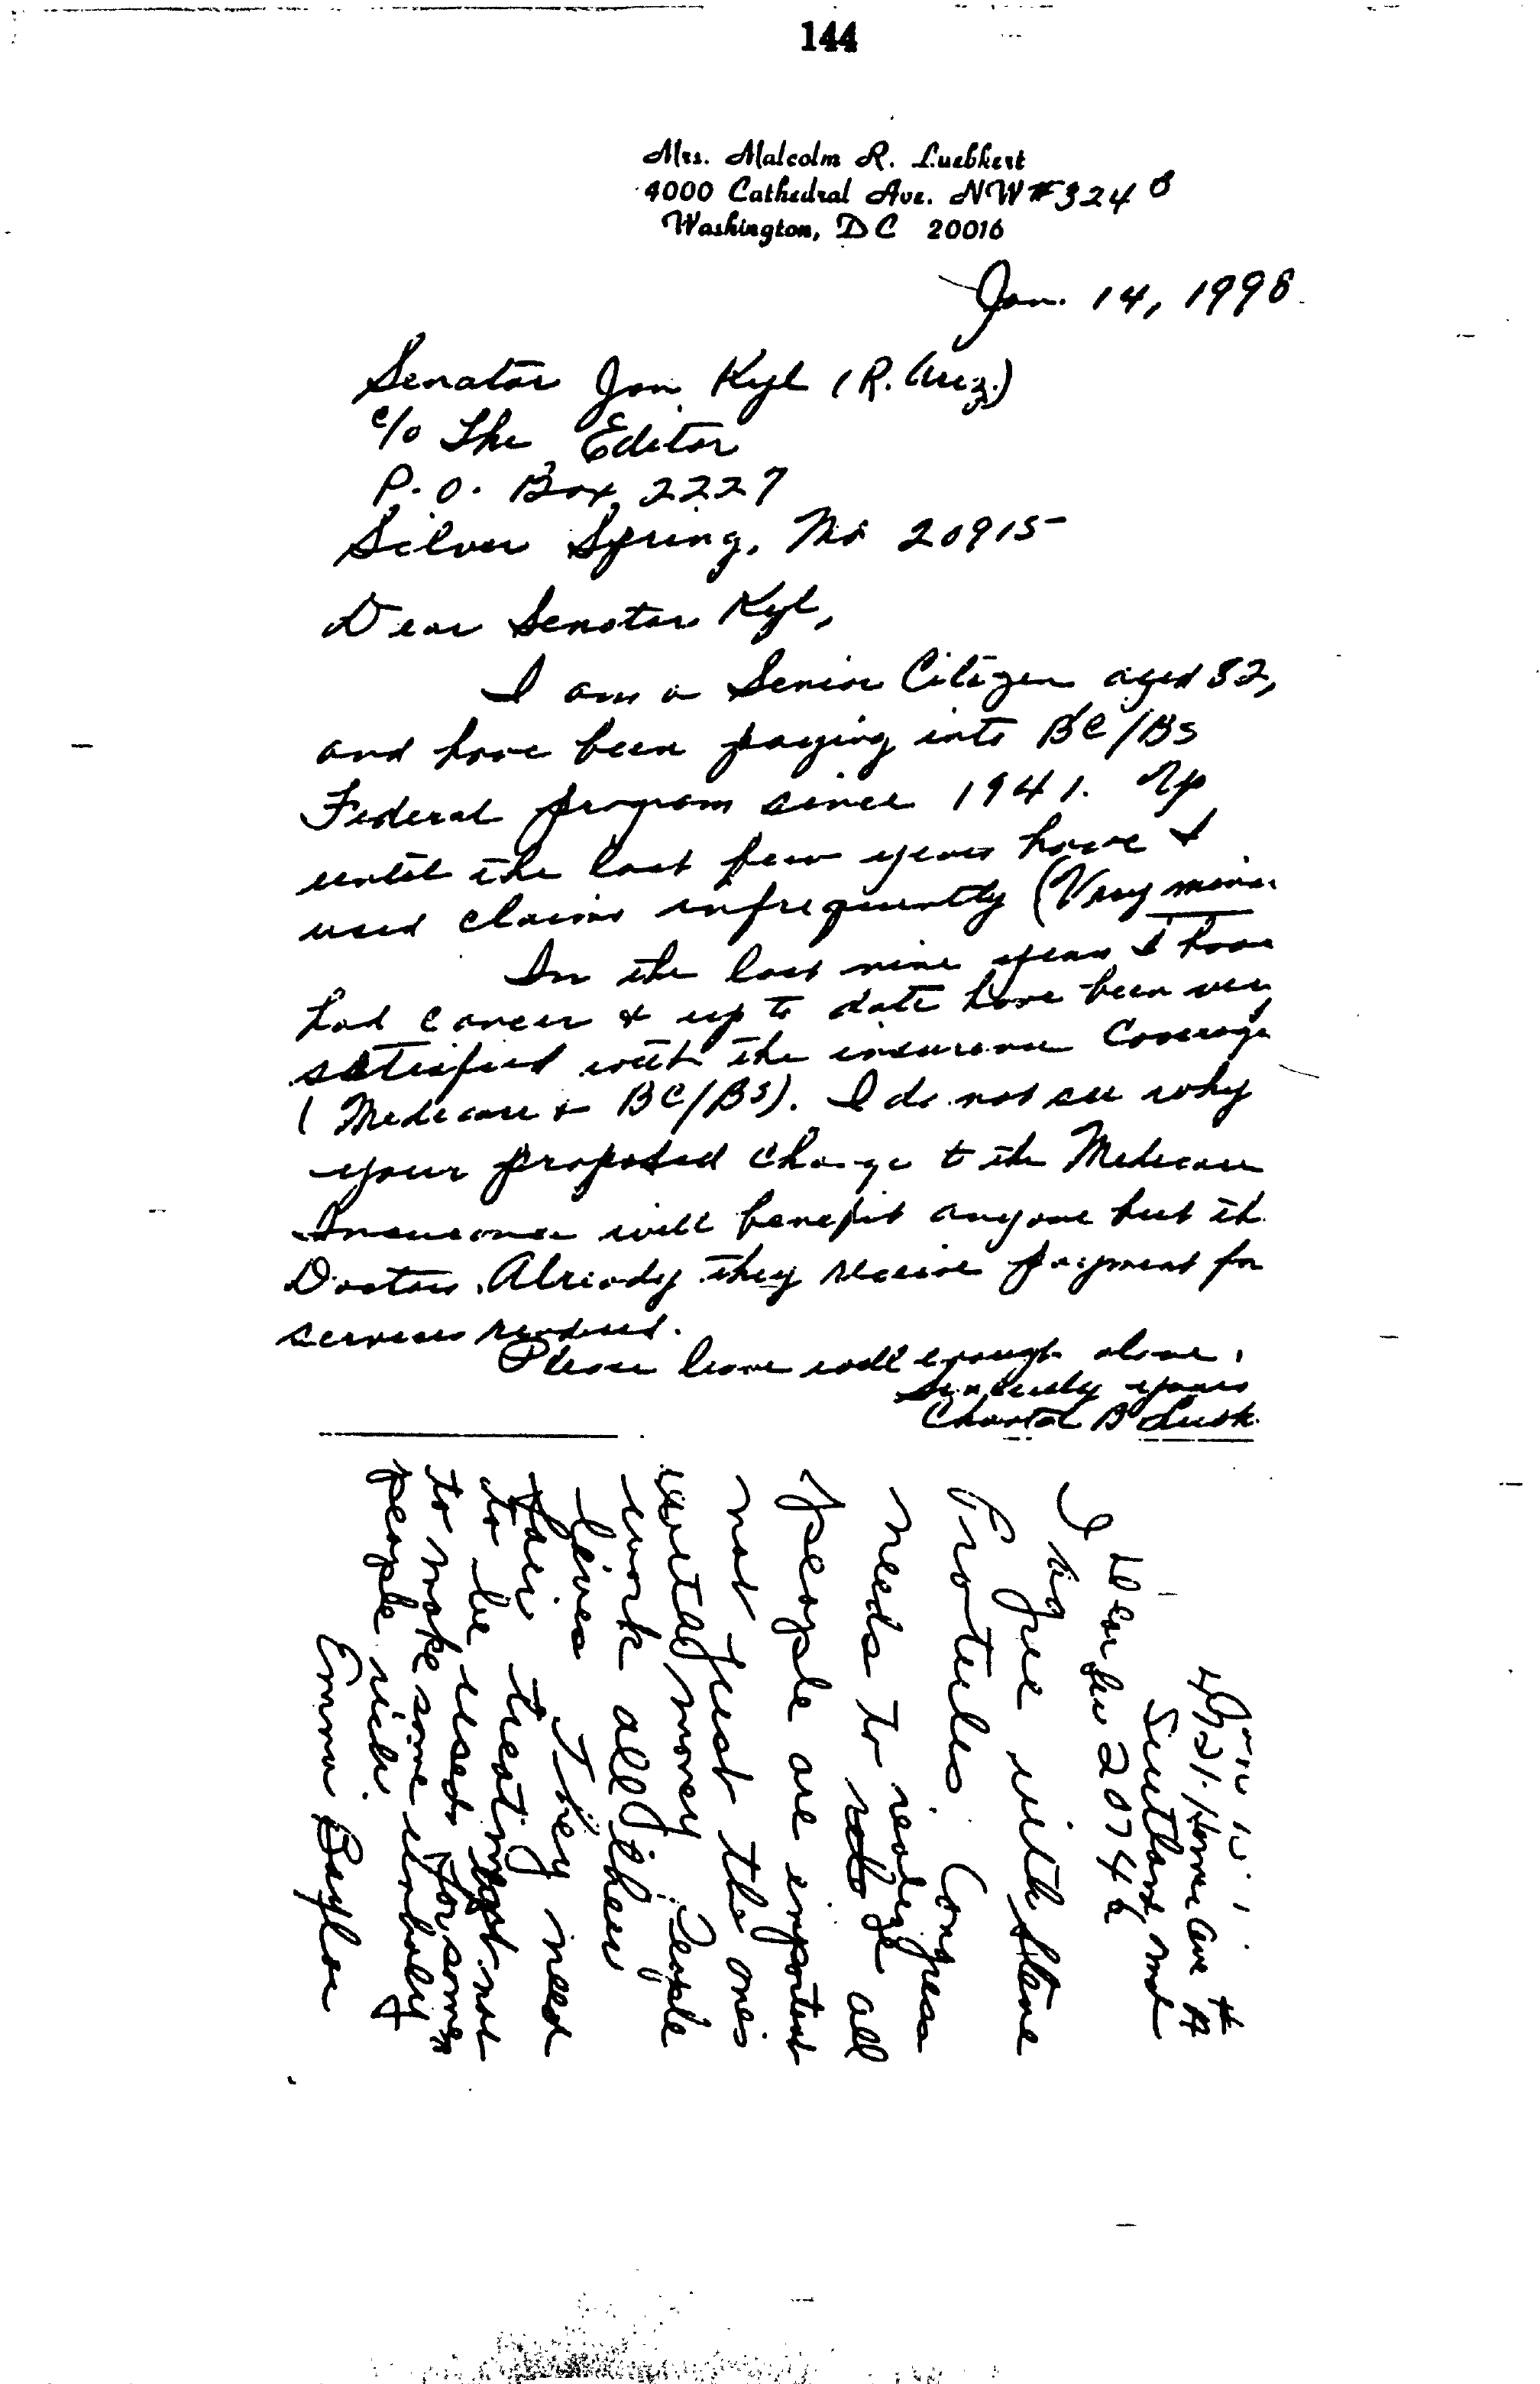 144
Mrs. Malcolm R. Luebkert
4000 Cathedral Ave. NW #324 B
Washington, DC 20016
Jan. 14, 1998
Senator Jon Kyl (R. Ariz.)
c/o The Editor
P.O. Box 2227
Silver Spring, Md 20915
Dear Senator Kyl,
I am a Senior Citizen aged 82,
and have been paying into BC/BS
Federal program since 1941. Up
until the last few years have I
used claims infrequently (Very minor
In the last nine years I have
had cancer & up to date have been very
satisfied with the insurance coverage
(Medicare & BC/BS). I do not see why
your proposed change to the Medicare
Insurance will benefit anyone but the
Doctors. Already they receive payment for
services rendered.
Please leave well enough alone.
Sincerely yours
4721 Home Ave #A
Suitland, Md
20746
Dear Sir
I agree with Steve
Protulis. Congress
needs to realize all
people are important
not just the ones
with money. People
work all their
lives They need
fair treatment not
to be used for some
to make some unholy
people rich.
Emma Baylor